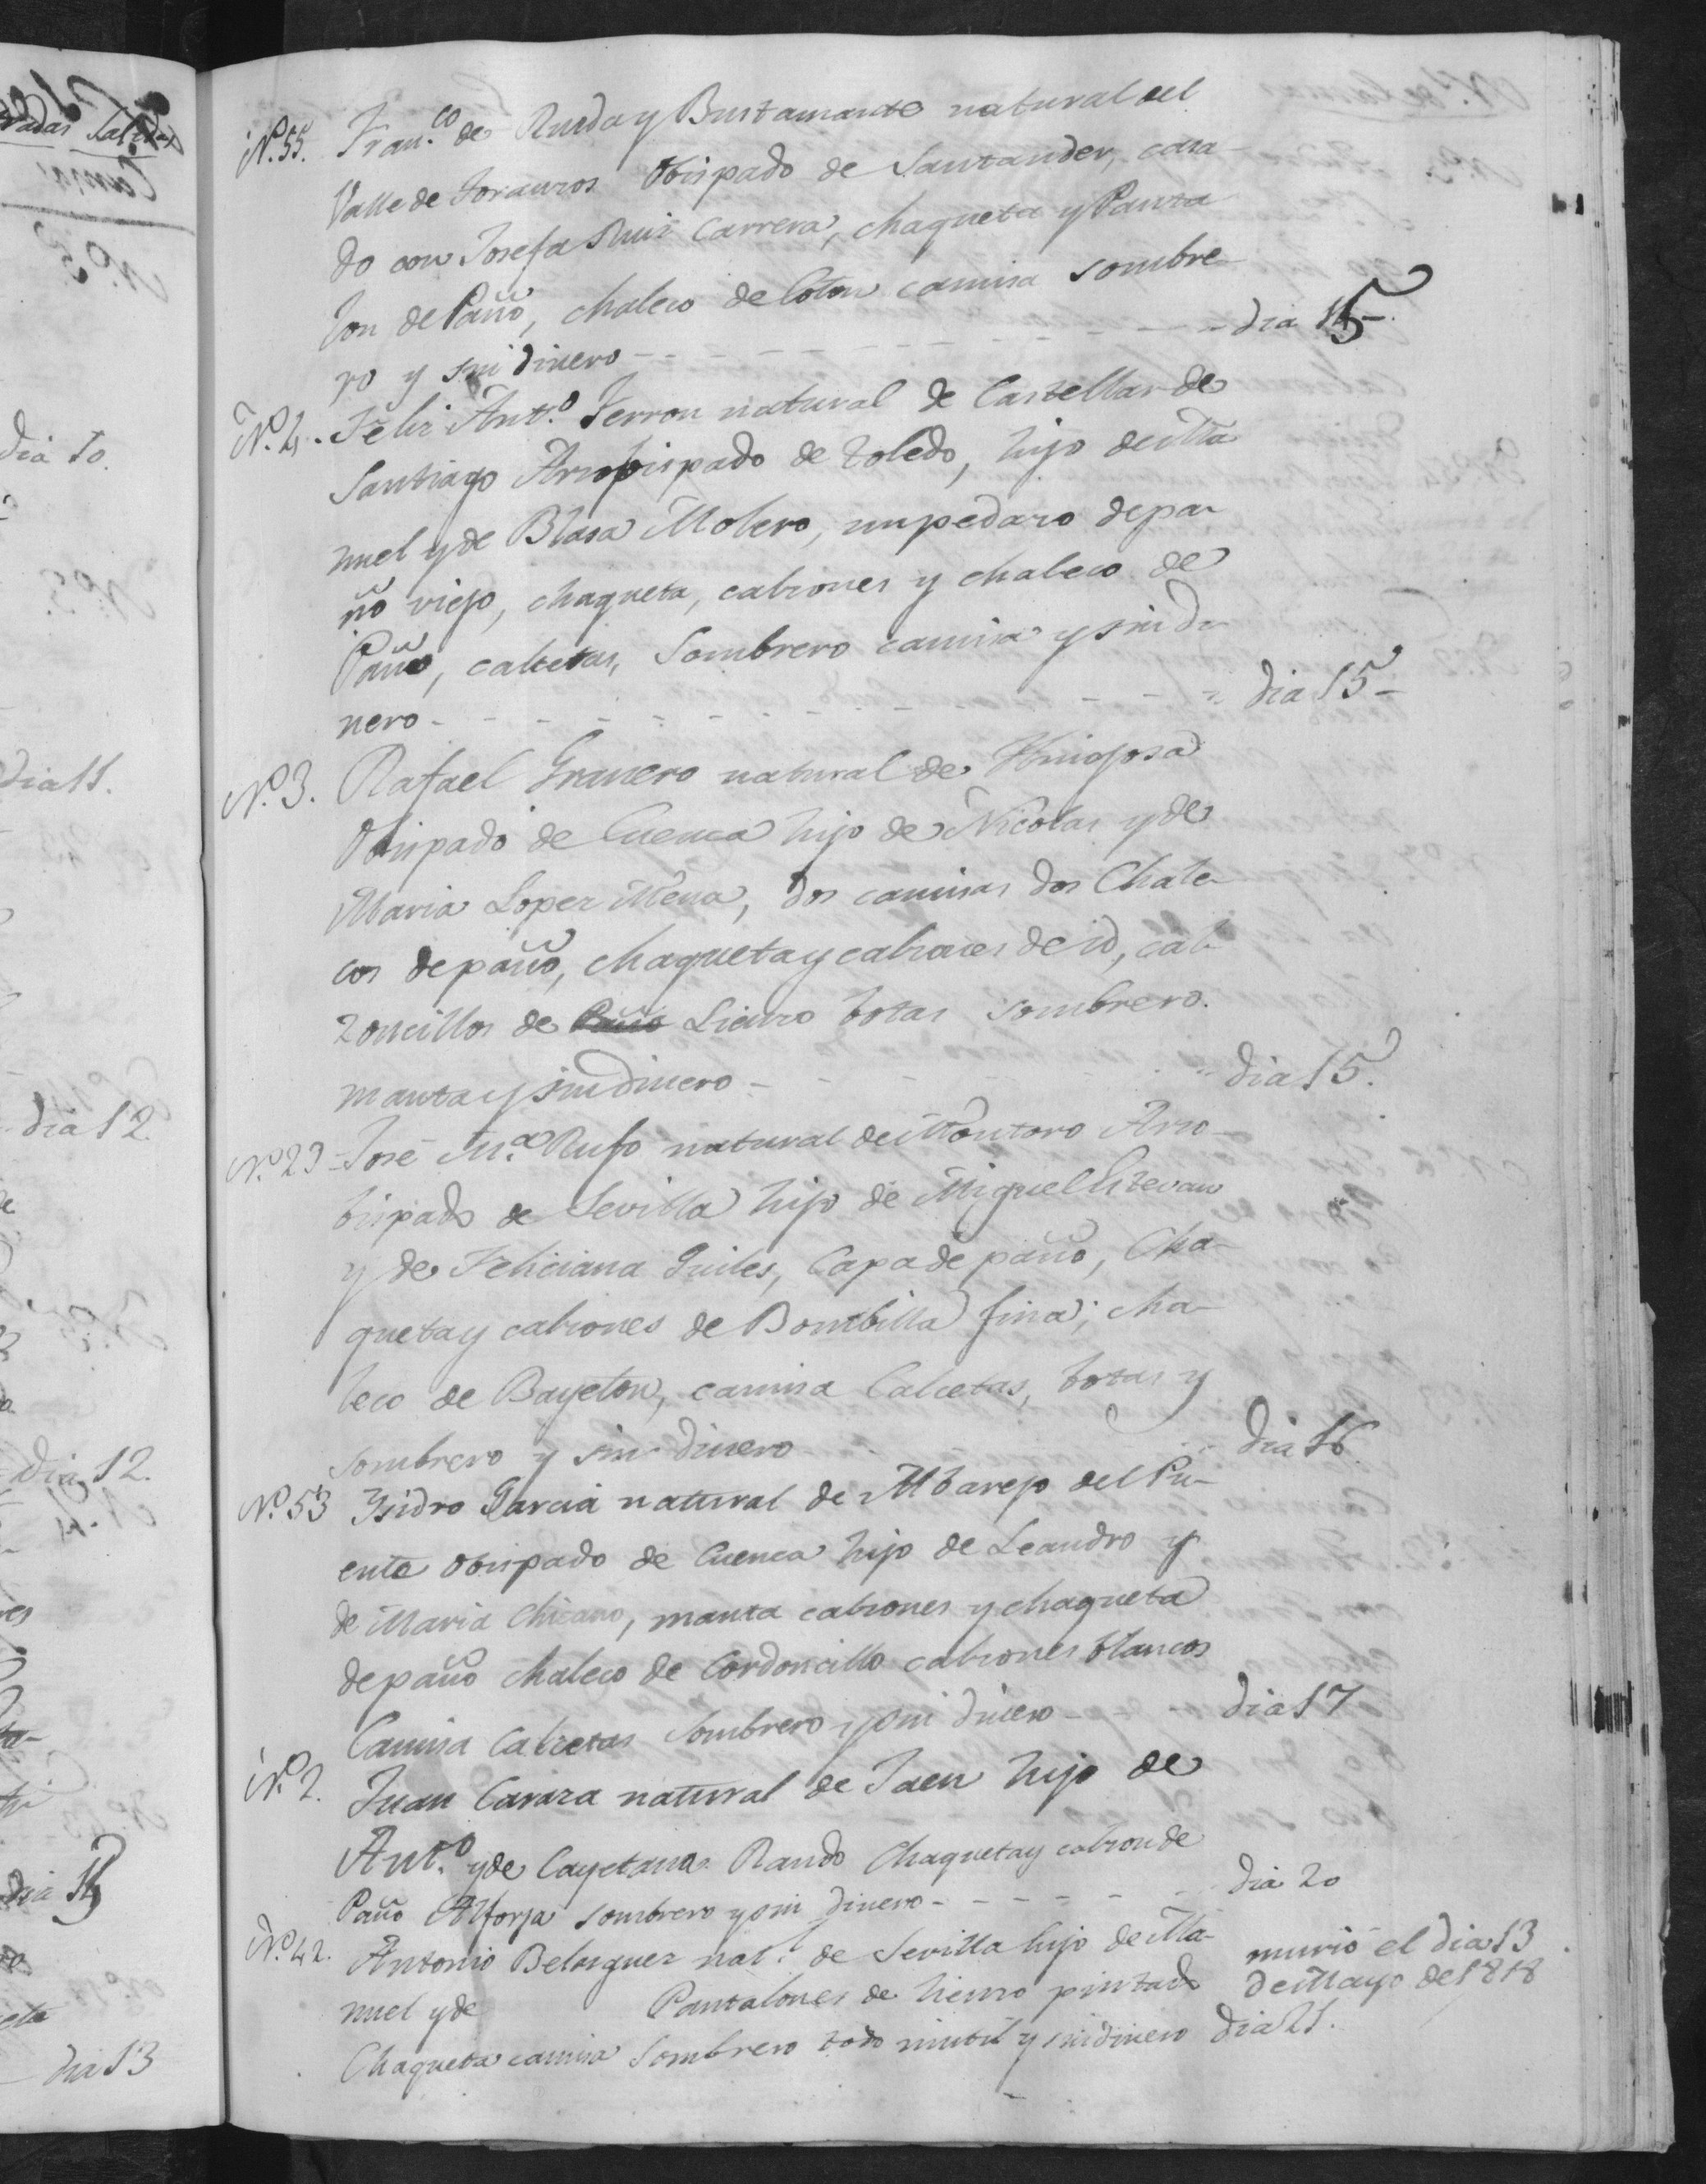 Nº. 55. Fran.co de Rueda y Bustamante natural del
Valle de Toranzos Obispado de Santander, casa-
do con Josefa Ruiz Carrera, chaqueta y Panta
lon de Paño, chaleco de Coton camisa sombre-
ro y sin dinero - - - - - - - - - - - dia 15-
Nº. 4. Felix Antt.º Ferron natural de Castellar de
Santiago Arzobispado de Toledo, hijo de Ma
nuel y de Blasa Molero, un pedazo de pa-
ño viejo, chaqueta, calzones y chaleco de
Paño, calcetas, Sombrero camisa y sin di-
nero - - - - - - - - - - - - - dia 15-
Nº. 3. Rafael Granero natural de Hinojosa
Obispado de Cuenca hijo de Nicolas y de
Maria Lopez Mena, dos camisas dos Chale-
cos de paño, chaqueta y calzones de id, cal-
zoncillos de Paño Lienzo botas sombrero.
manta y sin dinero - - - - - - - dia 15.
Nº. 23 - José M.a Rufo natural de Montoro Arzo-
bispado de Sevilla hijo de Miguel Estevan
y de Feliciana Guiles, Capa de paño, Cha-
queta y calzones de Bombilla fina; cha-
leco de Bayeton, camisa Calcetas, botas y
sombrero y sin dinero - - - dia 16.
Nº. 53 Ysidro Garcia natural de Albarejo del Pu-
ente Obispado de Cuenca hijo de Leandro y
de Maria Chicano, manta calzones y chaqueta
de paño chaleco de Cordoncillo calzones blancos
Camisa Calzetas Sombrero y sin dinero - - - dia 17
Nº. 2. Juan Caraza natural de Jaen hijo de
Ant.º y de Cayetana Rando Chaqueta y calzon de
Paño Alforja sombrero y sin dinero - - - - - - dia 20
Nº. 42. Antonio Belasquez nat.l de Sevilla hijo de Ma- murió el dia 13
nuel y de Pantalones de lienzo pintado de Mayo de 1818
Chaqueta camisa Sombrero todo inutil y sin dinero dia 21.